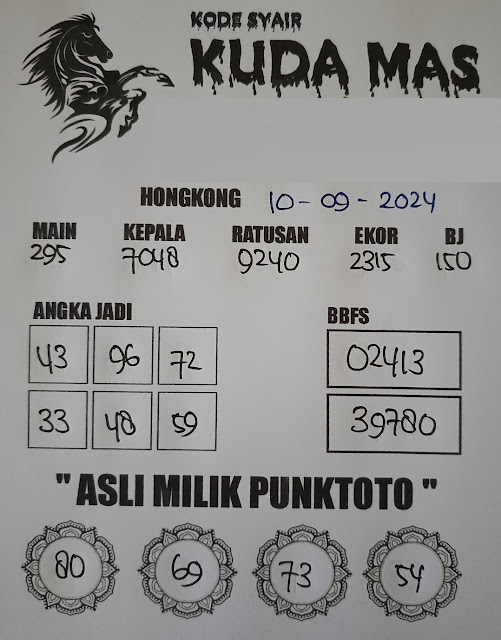 KODE SYAIR
KUDA MAS
HONGKONG 10-09-2024
MAIN KEPALA RATUSAN EKOR BJ
295 7048 9240 2315 150
ANGKA JADI BBFS
43 96 72 02413
33 48 59 39780
" ASLI MILIK PUNKTOTO "
80 69 73 54